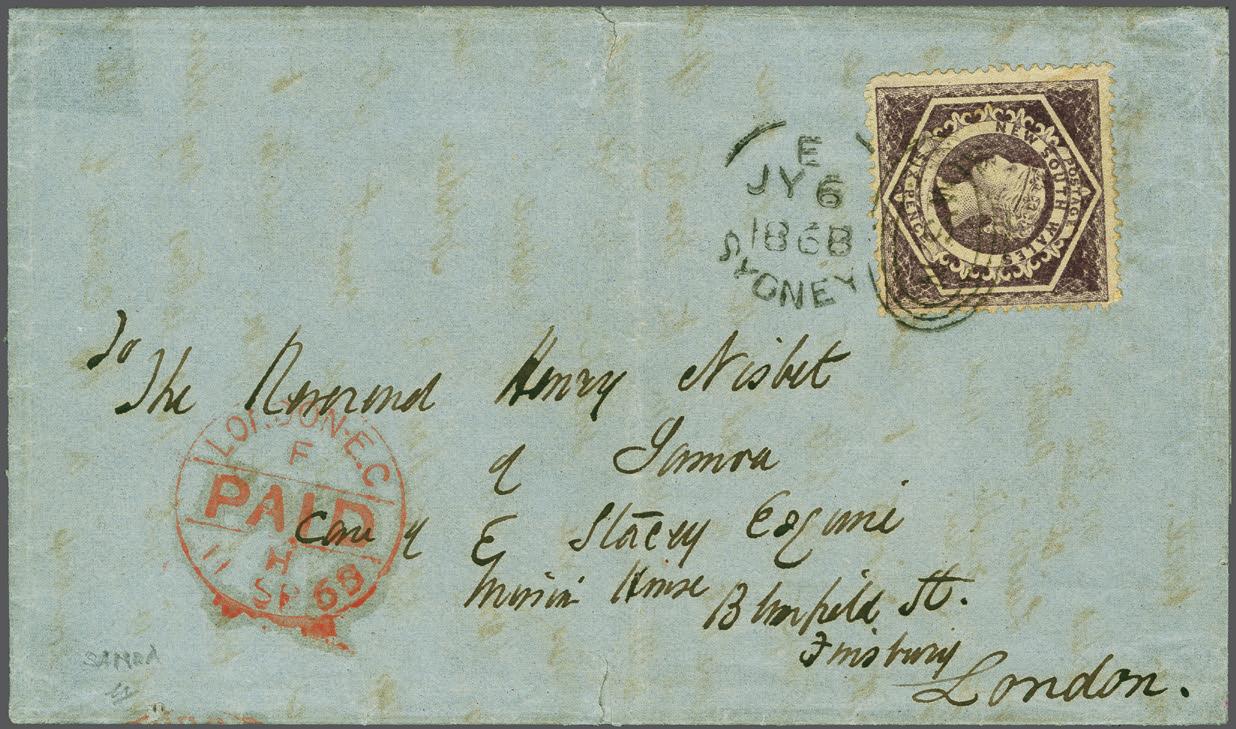 E
JY 6
1868
SYDNEY
POSTAGE
NEW SOUTH WALES
SIX-PENCE
To
The Reverend Henry Nisbet
of Samoa
Care of E Stacey Esquire
Mission House Blomfield St.
Finsbury
London.
LONDON·E.C
F
PAID
11 H
SP 68
SAMOA